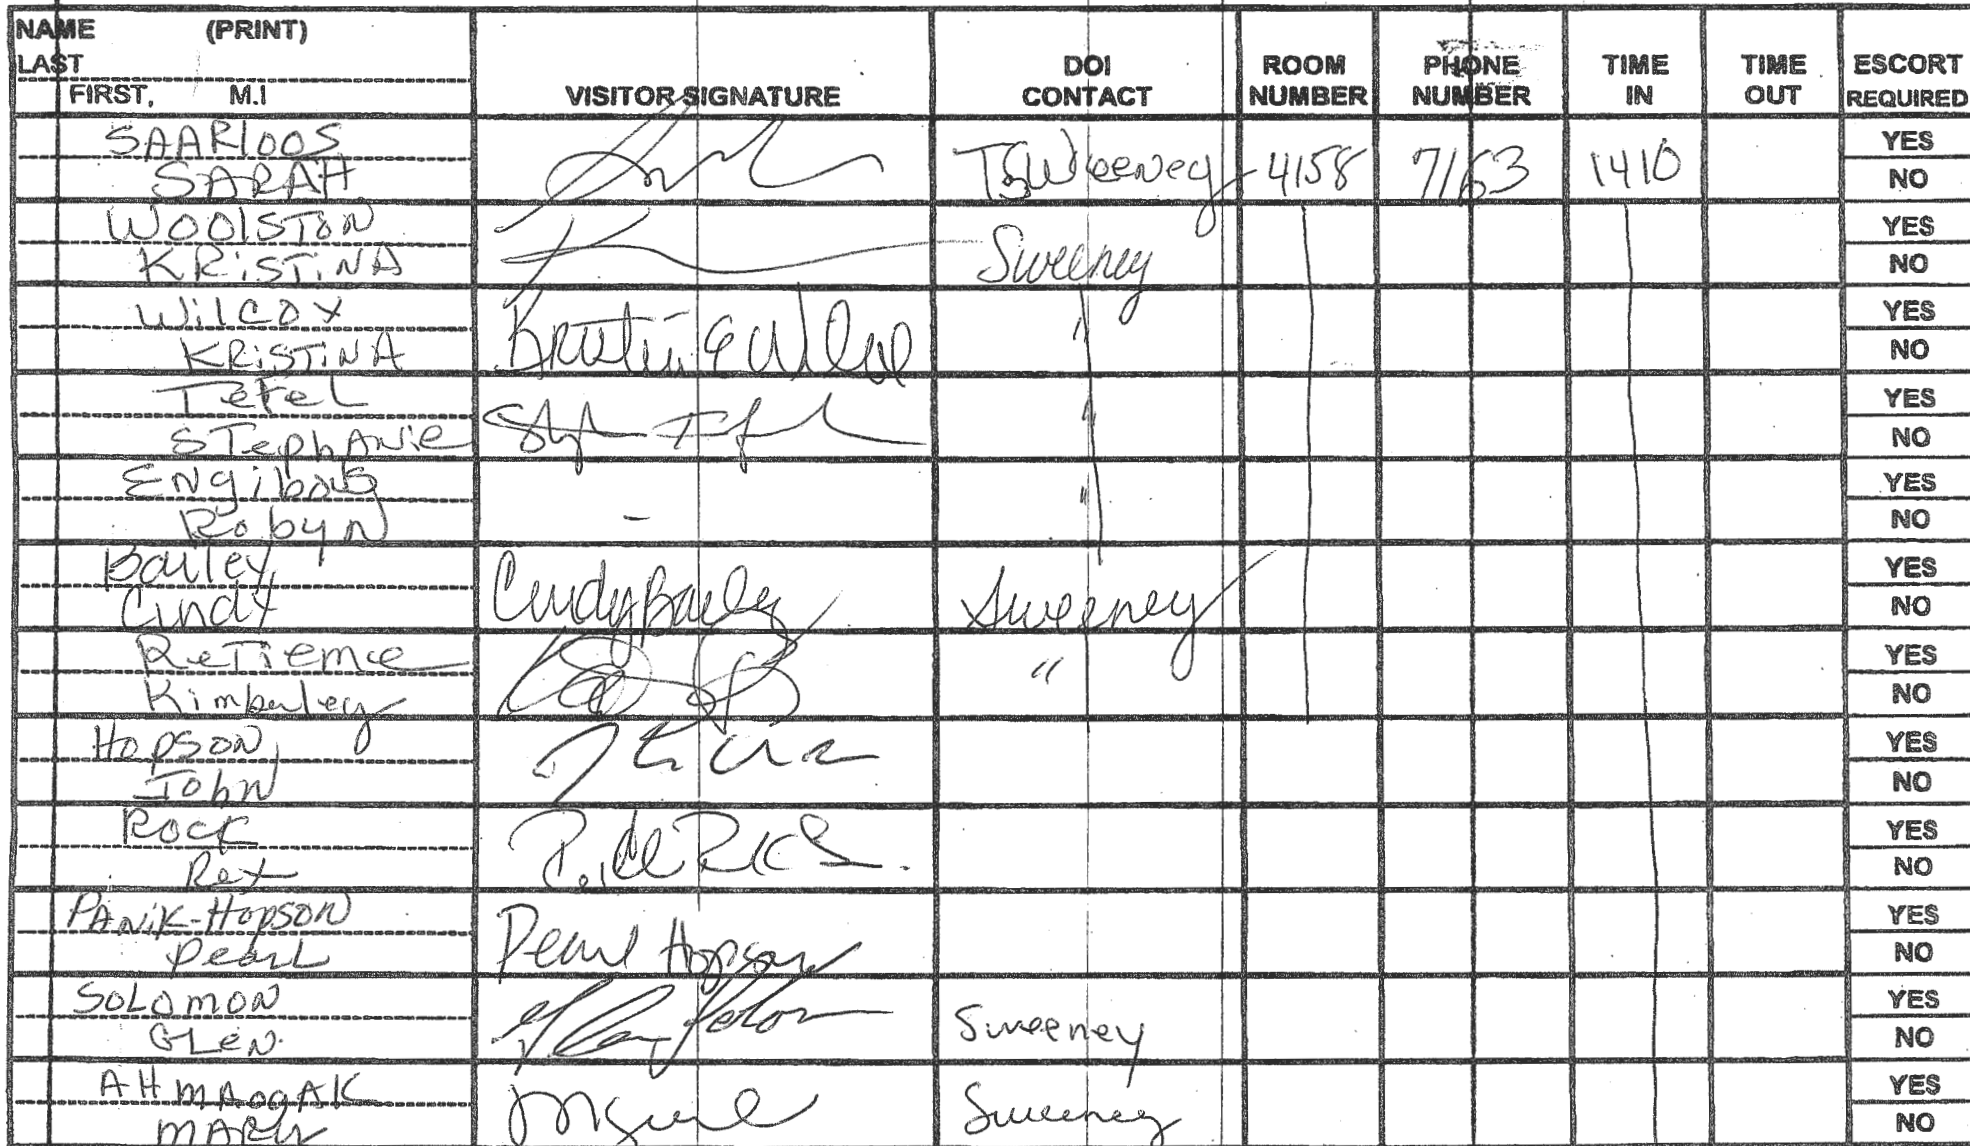 NAME (PRINT)
LAST
FIRST, M.I
VISITOR SIGNATURE
DOI CONTACT
ROOM NUMBER
PHONE NUMBER
TIME IN
TIME OUT
ESCORT REQUIRED
SAARLOOS
SARAH
TSWeeney 4158 7163 1410
YES
NO
WOOLSTON
KRISTINA
Sweeney
YES
NO
WILCOX
KRISTINA
"
YES
NO
Tefel
STephANie
"
YES
NO
Robyn
"
YES
NO
Bailey,
Cindy
Cindy Bailey
Sweeney
YES
NO
Kimberley
"
YES
NO
Hopson,
John
YES
NO
ROCK
Rex
YES
NO
PANIK-Hopson
Pearl
Pearl Hopson
YES
NO
SOLOMON
GLEN
Sweeney
YES
NO
AHMAOGAK
MARY
Sweeney
YES
NO